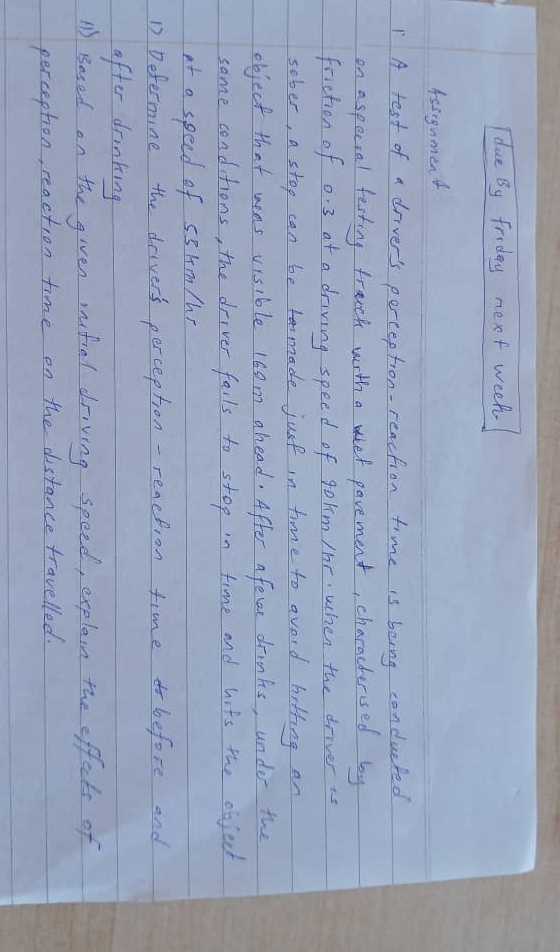 due By friday next week.
Assignment
1. A test of a driver's perception-reaction time is being conducted
on a special testing track with a wet pavement, characterised by
friction of 0.3 at a driving speed of 90km/hr. when the driver is
sober, a stop can be made just in time to avoid hitting an
object that was visible 160m ahead. After a few drinks, under the
same conditions, the driver fails to stop in time and hits the object
at a speed of 55km/hr
i) Determine the driver's perception-reaction time before and
after drinking
ii) Based on the given initial driving speed, explain the effects of
perception, reaction time on the distance travelled.